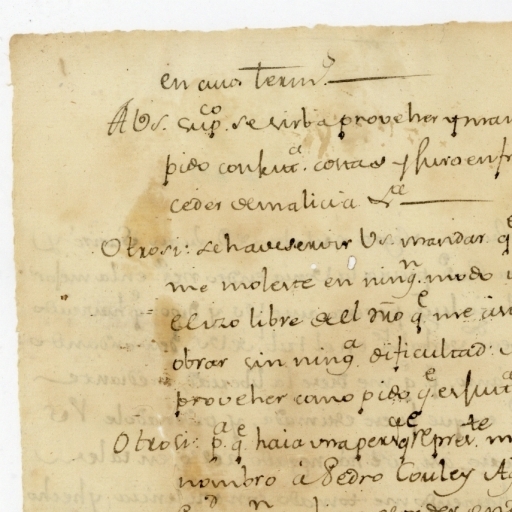 en cuio termo.
A Vs. supco. se sirba proveher y man
pido con justa. costas y juro en f
ceder de malicia &ce
Otrosi: se ha de servir Vs. mandar. qe
me moleste en ningn. modo
el uzo libre de el dro qe me as
obrar sin ninga. dificultad:
proveher como pido qe es justa
Otrosi: pa. qe haia vna perzna qe represte. m
nombro à Pedro Couley A